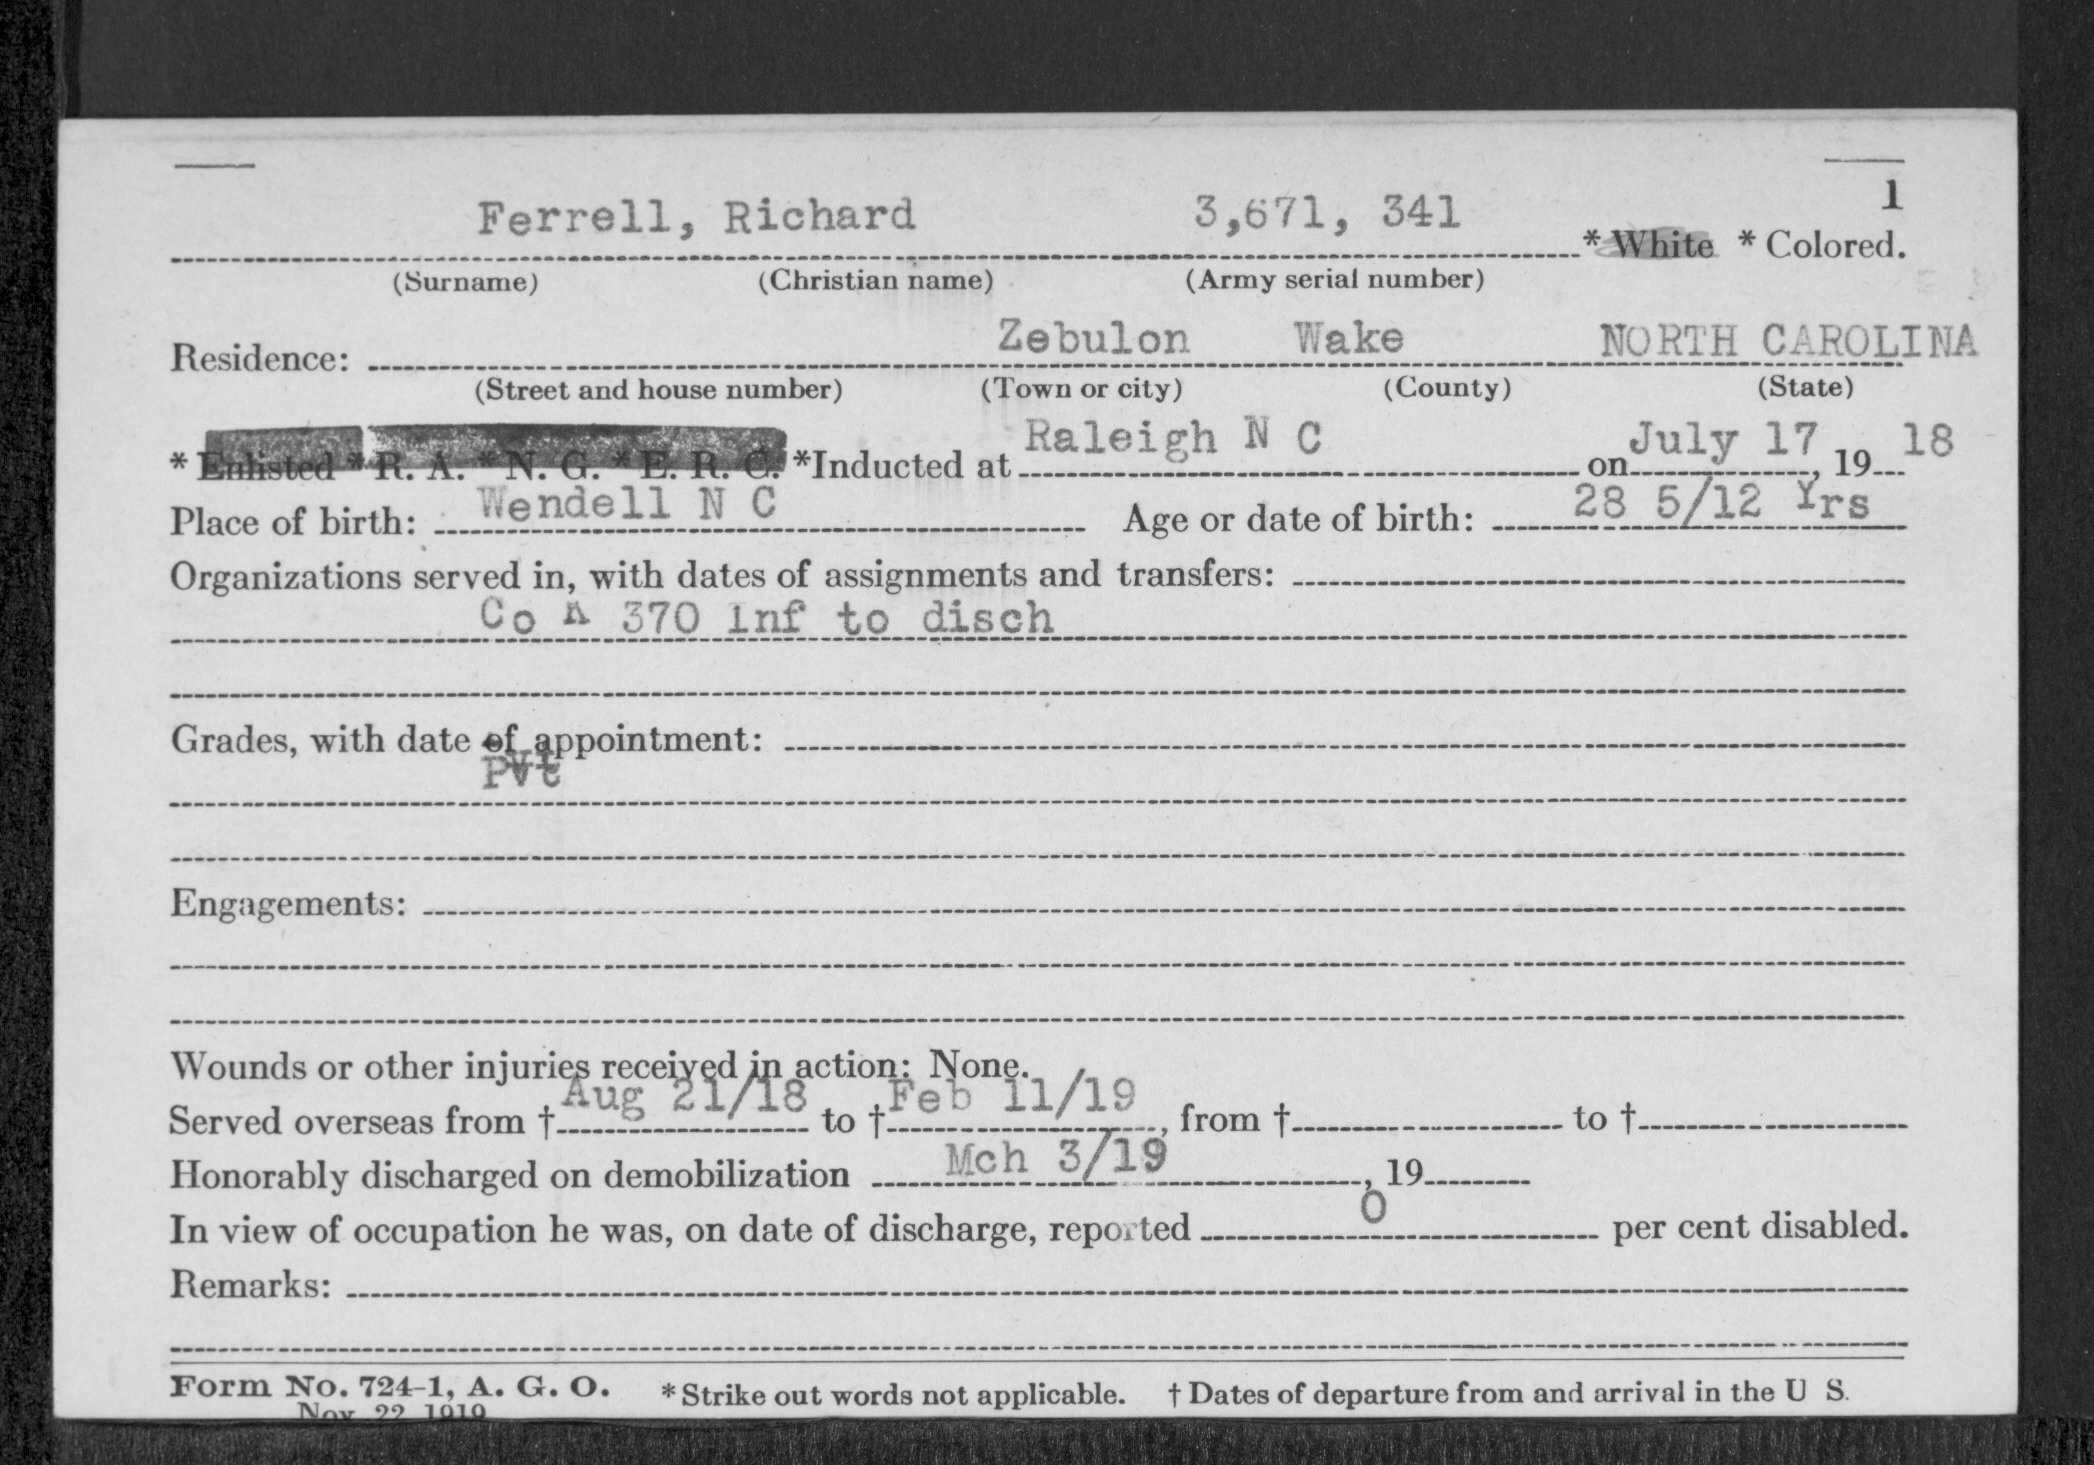 1
Ferrell, Richard 3,671, 341 * White * Colored.
(Surname) (Christian name) (Army serial number)
Residence: Zebulon Wake NORTH CAROLINA
(Street and house number) (Town or city) (County) (State)
* Enlisted * R. A. * N. G. * E. R. C. *Inducted at Raleigh N C on July 17, 1918
Place of birth: Wendell N C Age or date of birth: 28 5/12 Yrs
Organizations served in, with dates of assignments and transfers:
Co 370 Inf to disch
Grades, with date of appointment:
Pvt
Engagements:
Wounds or other injuries received in action: None.
Served overseas from † Aug 21/18 to † Feb 11/19, from † to †
Honorably discharged on demobilization Mch 3/19, 19
In view of occupation he was, on date of discharge, reported 0 per cent disabled.
Remarks:
Form No. 724-1, A. G. O. * Strike out words not applicable. † Dates of departure from and arrival in the U S.
Nov. 22 1919